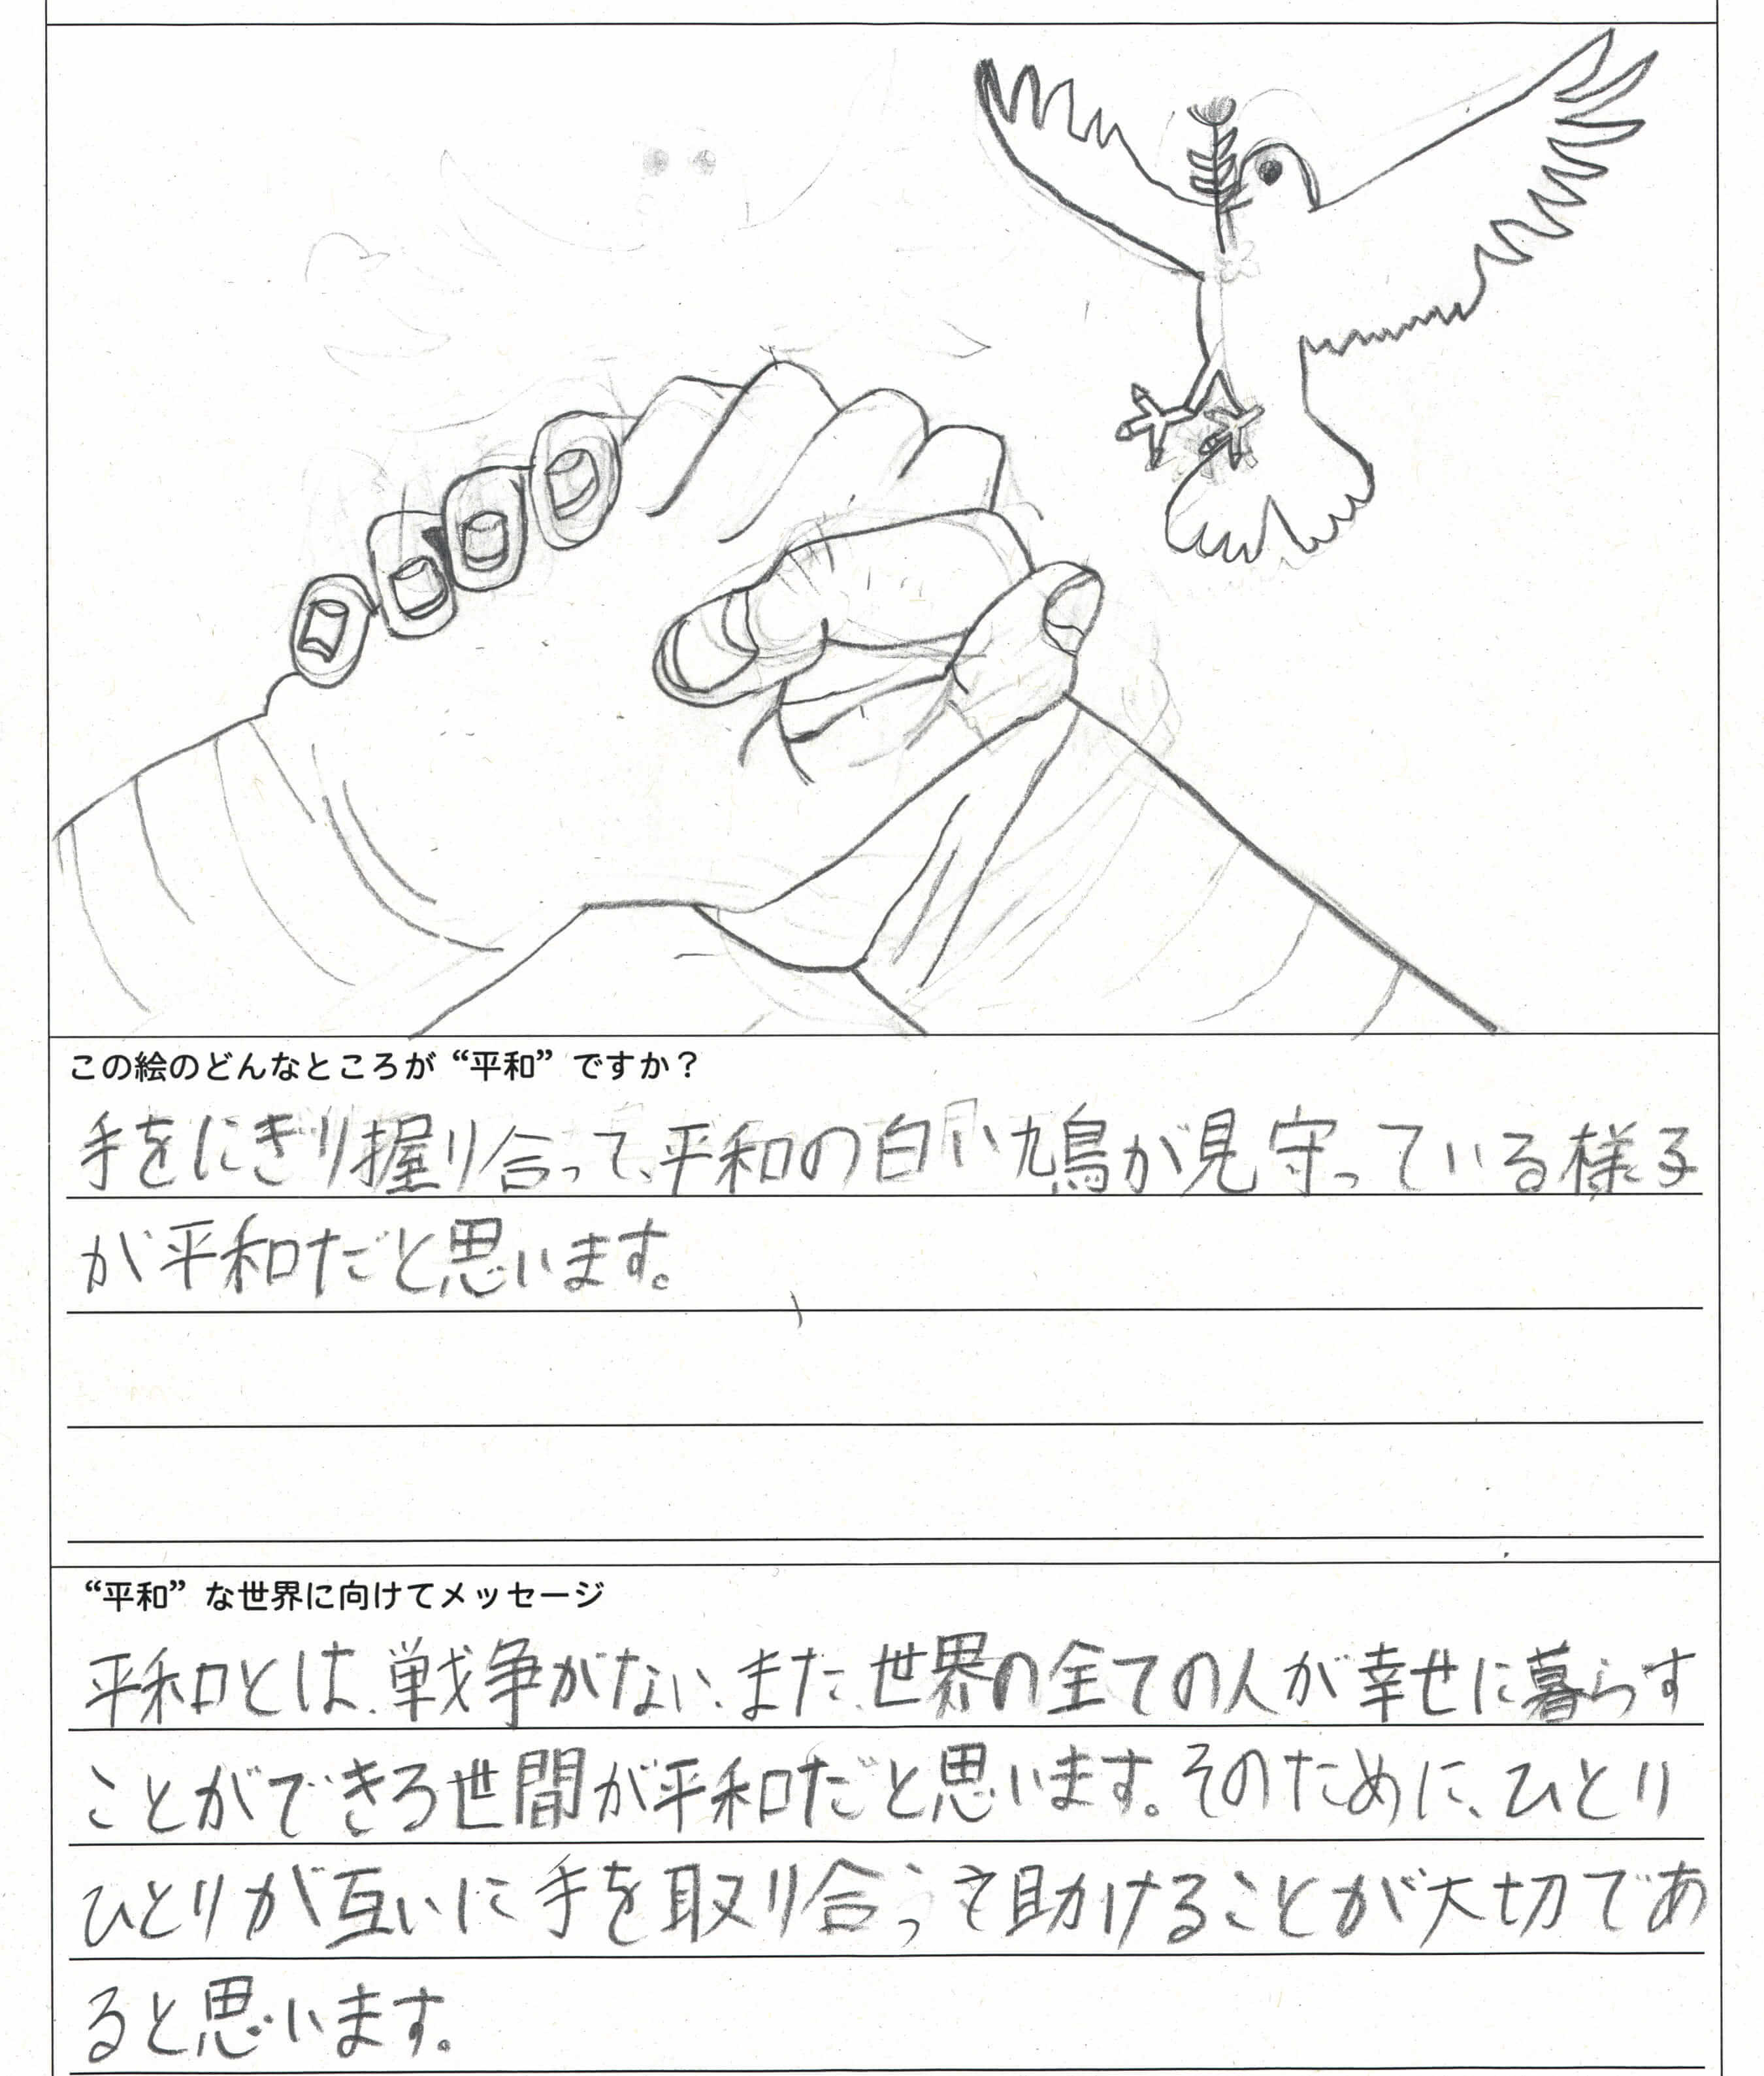 この絵のどんなところが“平和”ですか？
手をにぎり握り合って、平和の白い鳩が見守っている様子
が平和だと思います。
“平和”な世界に向けてメッセージ
平和とは、戦争がない、また、世界の全ての人が幸せに暮らす
ことができる世間が平和だと思います。そのために、ひとり
ひとりが互いに手を取り合って助けることが大切であ
ると思います。